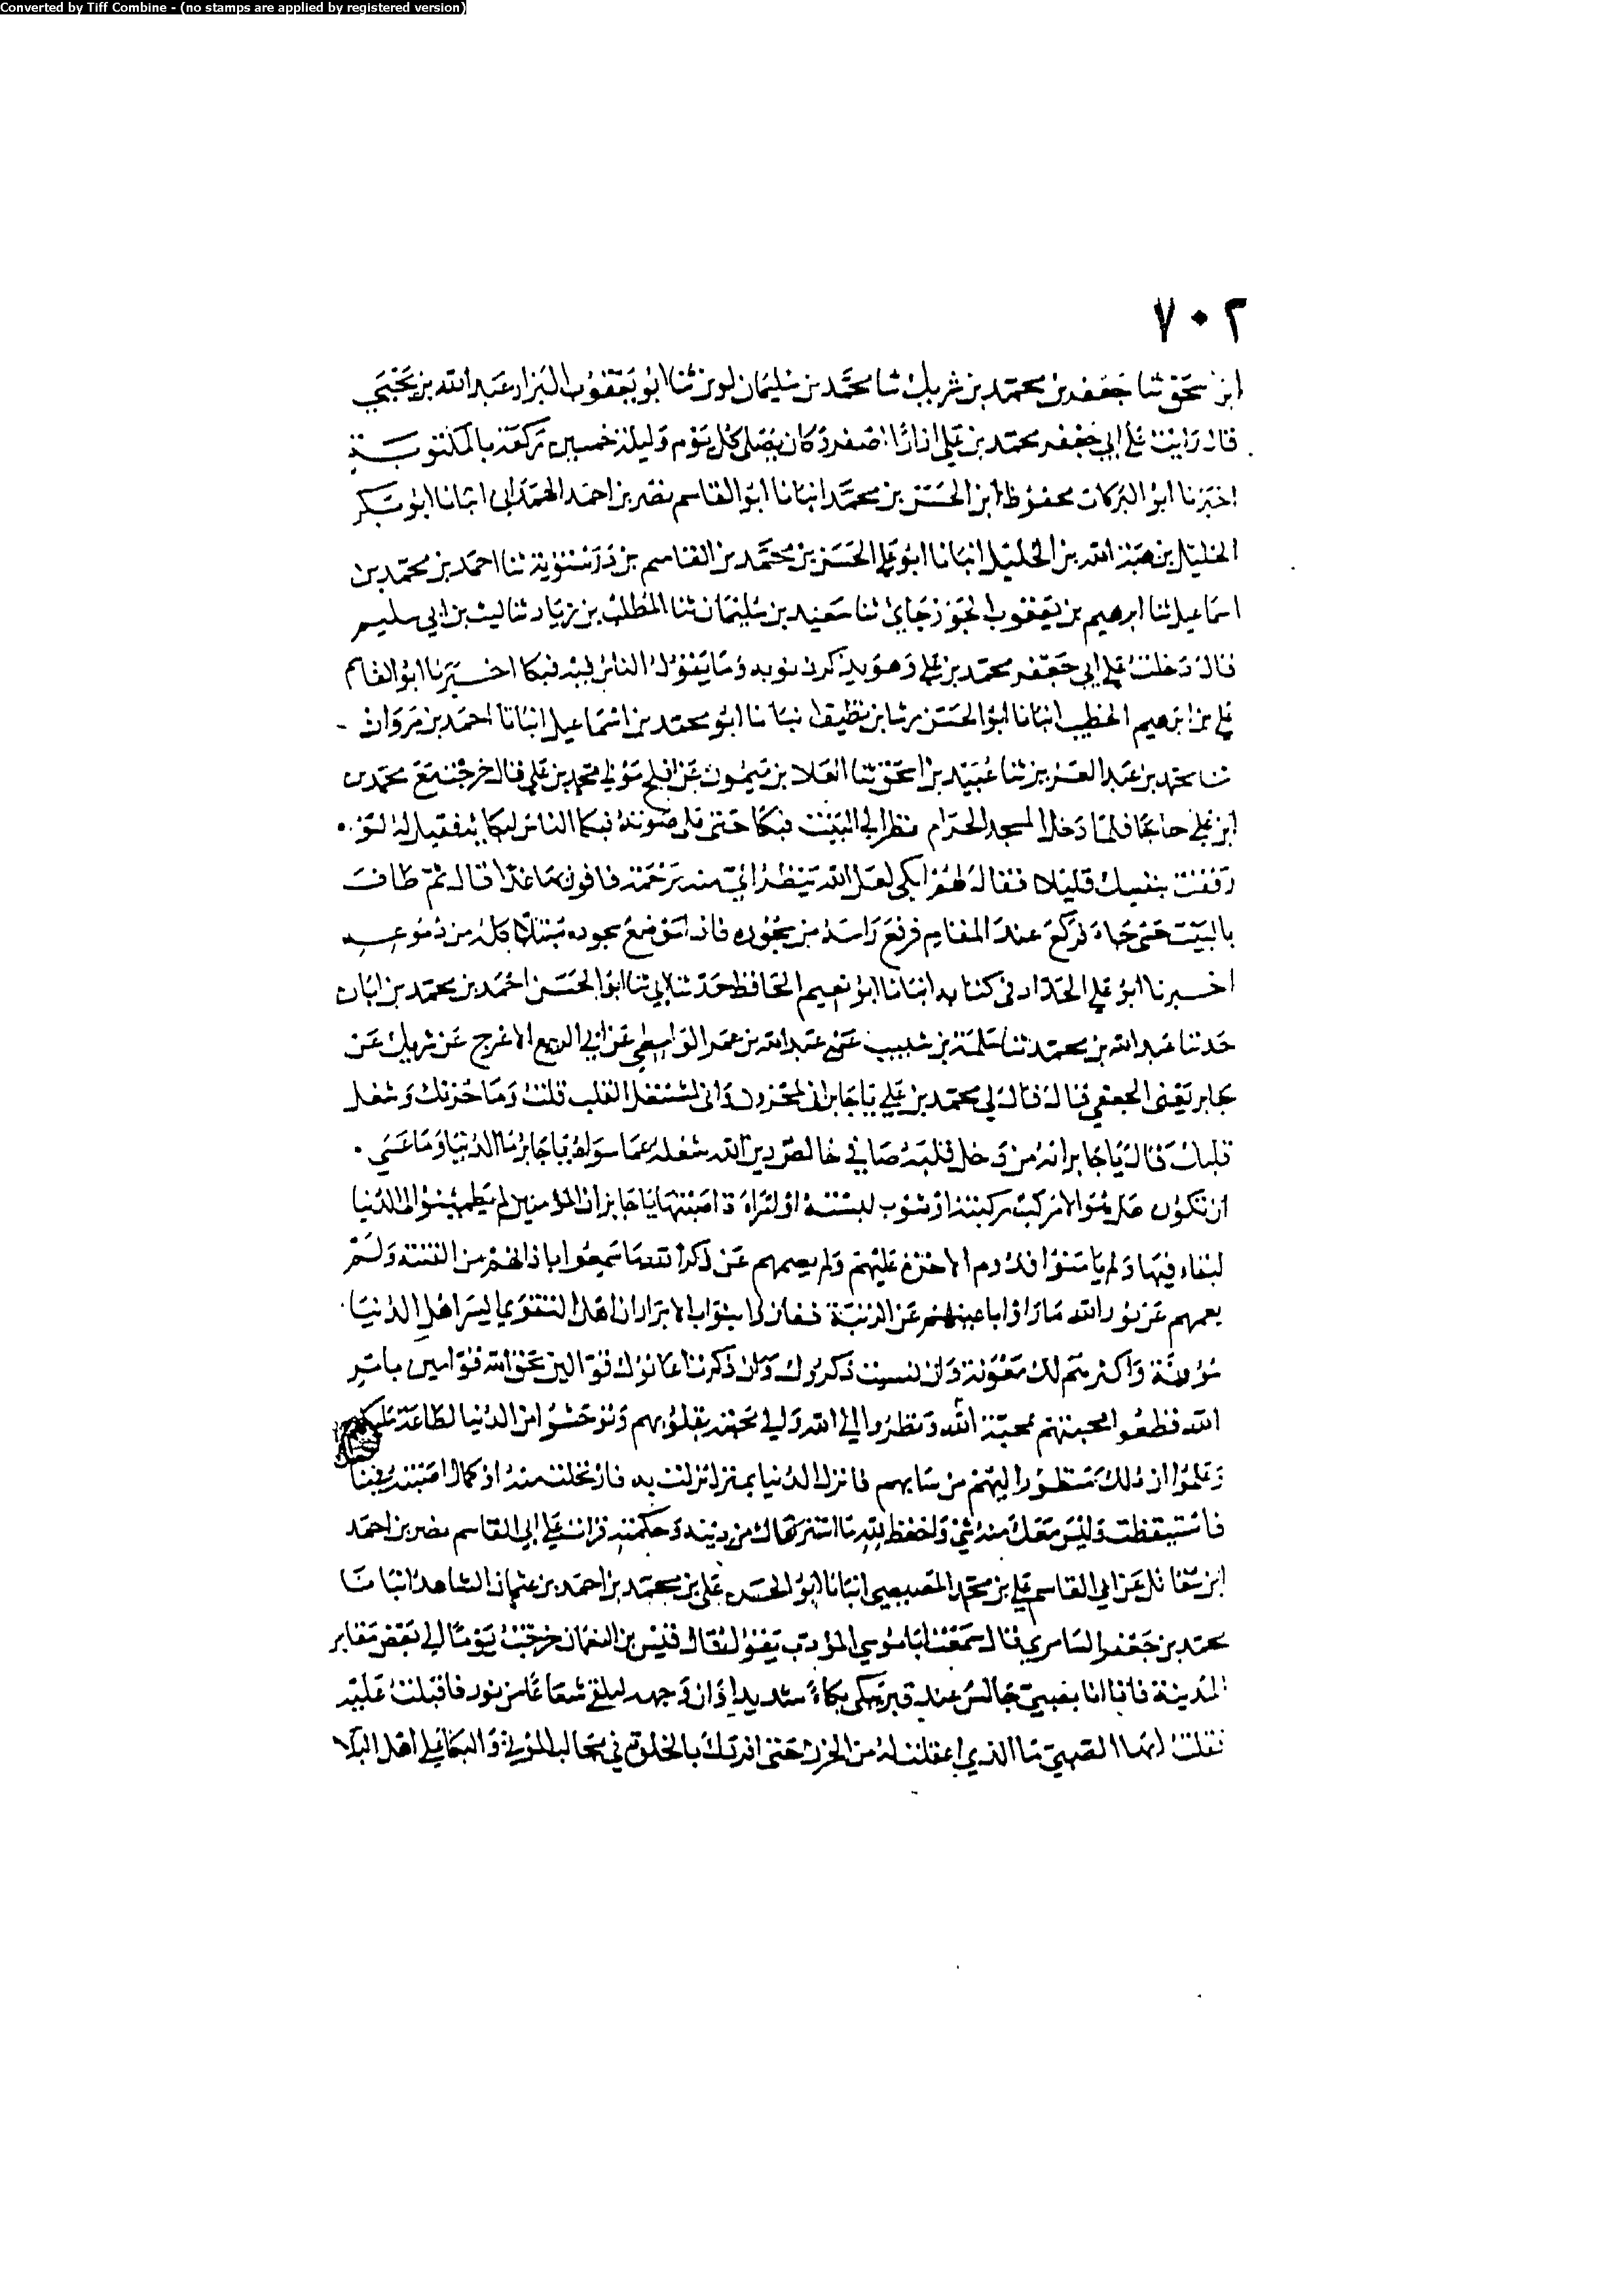 Converted by Tiff Combine - (no stamps are applied by registered version)
٧٠٢
ابن اسحق ثنا جعفر بن محمد بن شريك ثنا محمد بن سليمان لوين ثنا ابو يعقوب البزار عبد الله بن يحيى
قال رايت على ابي جعفر محمد بن علي ازارا اصفر وكان يصلى كل يوم وليلة خمسين ركعة بالمكتوبة
اخبرنا ابو البركات محفوظ ابن الحسن بن محمد انبانا ابو القاسم نصر بن احمد الهمداني انبانا ابو بكر
الخليل بن هبة الله بن الخليل انبانا ابو علي الحسن بن محمد بن القاسم بن درستويه ثنا احمد بن محمد بن
اسماعيل ثنا ابرهيم بن يعقوب الجوزجاني ثنا سعيد بن سليمان ثنا المطلب بن زياد ثنا ليث بن ابي سليم
قال دخلت على ابي جعفر محمد بن علي وهو يذكر ذنوبه وما يقول الناس فيه فبكا اخبرنا ابو القاسم
علي بن ابرهيم الخطيب انبانا ابو الحسن رشا بن نظيف انبانا ابو محمد بن اسماعيل انبانا احمد بن مروان
ثنا محمد بن عبد العزيز ثنا عبيد بن اسحق ثنا العلا بن ميمون عن افلح مولى محمد بن علي قال خرجت مع محمد بن
ابن علي حاجا فلما دخل المسجد الحرام نظر الي البيت فبكا حتى علا صوته فبكا الناس لبكايه فقيل له لو
رفقت بنفسك قليلا فقال لهم ابكي لعل الله ينظر الي منه برحمة فافوز بها غدا قال ثم طاف
بالبيت حتى جاء فركع عند المقام فرفع راسه من سجوده فاذا موضع سجوده مبتلا كله من دموعه
اخبرنا ابو علي الحداد في كتابه انبانا ابو نعيم الحافظ حدثنا ابي ثنا ابو الحسن احمد بن محمد بن ابان
حدثنا عبد الله بن محمد ثنا سلمة بن شبيب عن عبد الله بن عمر الواسطي عن ابي الربيع الاعرج عن شريك عن
جابر يعنى الجعفي قال قال لي محمد بن علي يا جابر اني لمحزون واني لمشتغل القلب قلت وما حزنك وشغل
قلبك قال يا جابر انه من دخل قلبه صافي خالص دين الله شغله عما سواه يا جابر ما الدنيا وما عسى
ان تكون هل هو الا مركب ركبته او ثوب لبسته او امراة اصبتها يا جابر ان المؤمنين لم يطمئنوا الى الدنيا
لبقاء فيها ولم يامنوا قدوم الاخرة عليهم ولم يصمهم عن ذكر الله ما سمعوا باذانهم من الفتنة ولم
يعمهم عن نور الله ما راوا باعينهم من الزينة ففازوا بثواب الابرار ان اهل التقوى ايسر اهل الدنيا
مؤونة واكثرهم لك معونة وان نسيت ذكروك وان ذكرت اعانوك قوالين بحق الله قوامين بامر
الله قطعوا محبتهم بمحبة الله ونظروا الي الله والي محبته بقلوبهم وتوحشوا من الدنيا لطاعة مليكهم
وعلموا ان ذلك منظور اليهم من شانهم فانزل الدنيا بمنزل نزلت به فارتحلت منه او كمال اصبته في منامك
فاستيقظت وليس معك منه شي واحفظ لله ما استرعاك من دينه وحكمته قرات على ابي القاسم نصر بن احمد
ابن مقاتل عن ابي القاسم علي بن محمد المصيصي انبانا ابو الحسن علي بن محمد بن احمد بن عثمان الشاهد انبانا
محمد بن جعفر السامري قال سمعت ابا موسي المؤدب يقول قال قيس بن النعمان خرجت يوما الي بعض مقابر
المدينة فاذا انا بصبي جالس عند قبر يبكي بكاء شديدا وان وجهه ليلقي شعاعا من نور فاقبلت عليه
فقلت ايها الصبي ما الذي اعقلت له من الحزن حتى افردك بالخلوة في مجالس الموتى والبكا علي اهل البلا